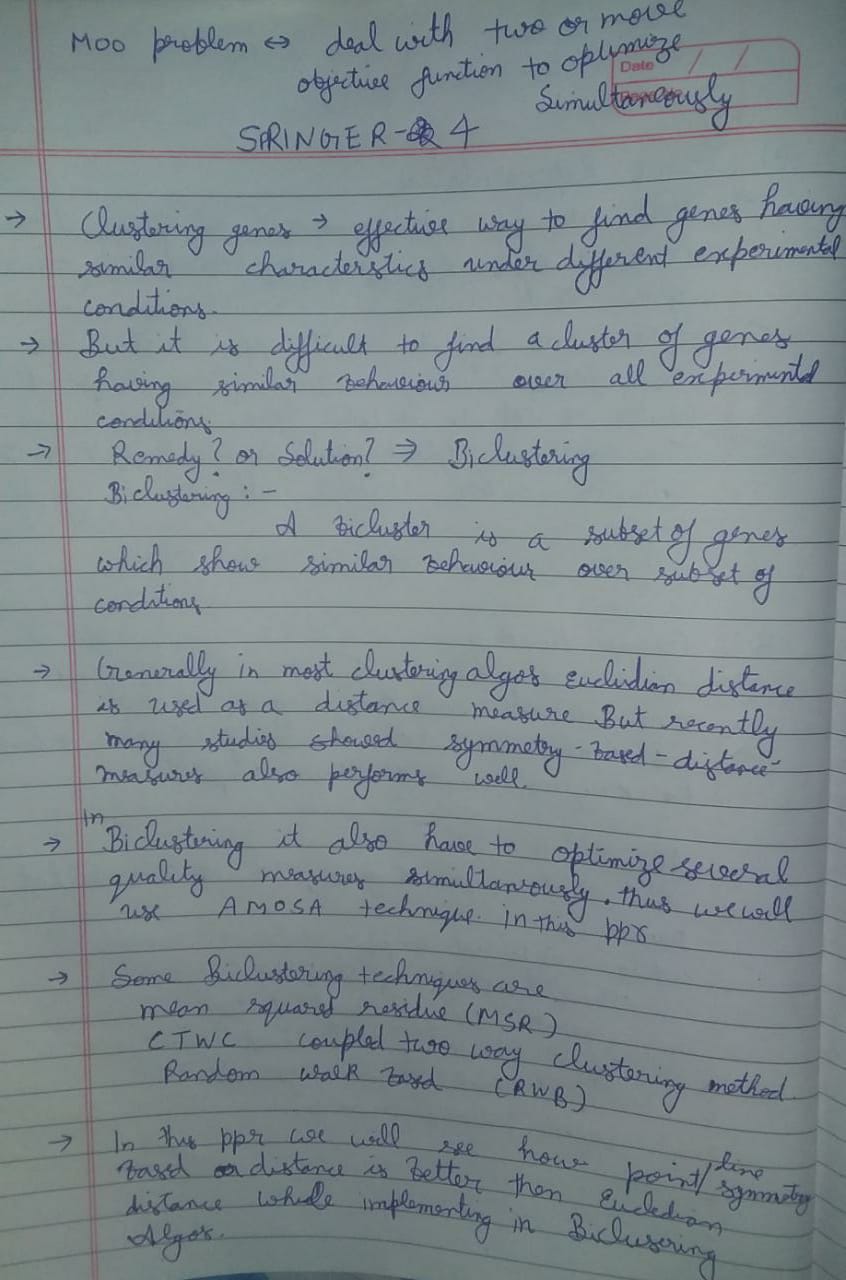 MOO problem ↔ deal with two or more
objective function to optimize
Date / /
Simultaneously
SPRINGER - 4
→ Clustering genes → effective way to find genes having
similar characterstics under different experimental
conditions.
→ But it is difficult to find a cluster of genes
having similar behaviour over all expermintal
conditions.
→ Remedy? or Solution? ⇒ Biclustering
Biclustering : -
A bicluster is a subset of genes
which show similar behaviour over subset of
conditions
→ Generally in most clustering algos Euclidian distance
is used as a distance measure But recently
many studies showed symmetry - based - distance -
measures also performs well.
→ In Biclustering it also have to optimize several
quality measures simultaneously, thus we will
use AMOSA technique in this ppr
→ Some Biclustering techniques are
mean squared residue (MSR)
CTWC coupled two way clustering method
Random walk based (RWB)
→ In this ppr we will see how point/line
based distance is better then symmetry
distance while implementing in Euclidian
Algos. Biclusering